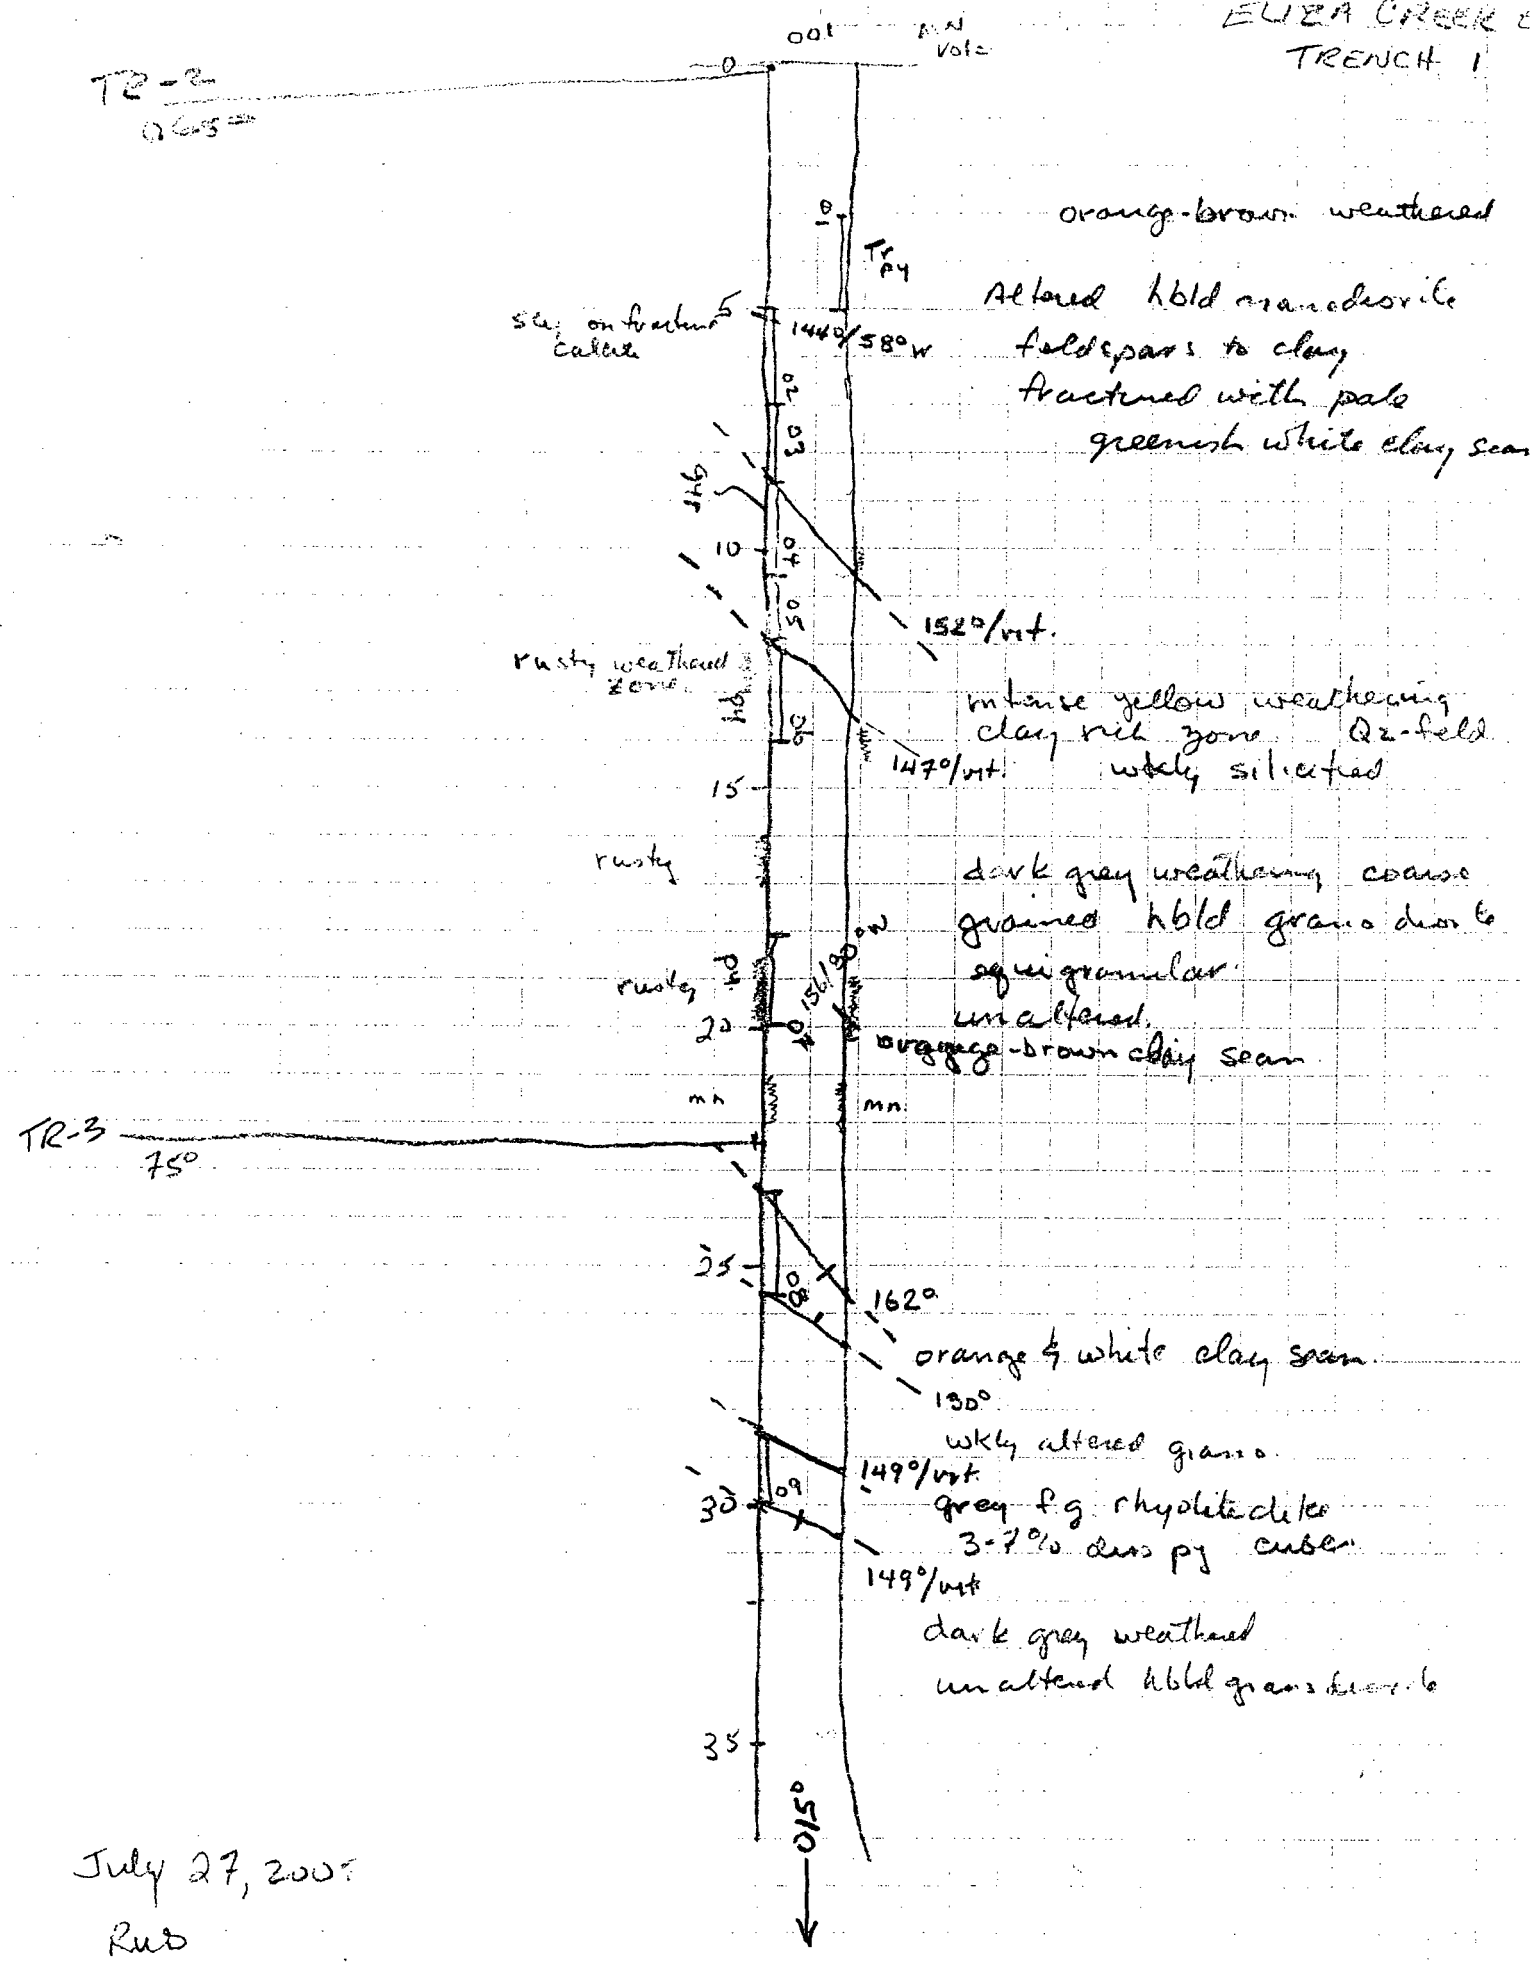 ELIZA CREEK
TRENCH 1
001
MN
0
TR-2
065°
orange-brown weathered
Tr
py
5
144°/58°W
Altered hbld granodiorite
feldspars to clay
fractured with pale
greenish white clay seam
on fracture
02
03
10
04
05
152°/vrt.
rusty weathered
zone
06
intense yellow weathering
clay rich zone Qz-feld
wkly silicified
147°/vrt.
15
rusty
dark grey weathering coarse
grained hbld granodiorite
equigranular
unaltered
rusty
py
156/80°W
20
07
orange-brown clay seam
mn
mn
TR-3
75°
25
08
162°
orange & white clay seam
130°
wkly altered grano.
149°/vrt.
grey f.g. rhyolite dike
3-7% diss py cubes
30
09
149°/vrt
dark grey weathered
unaltered hbld granodiorite
35
015°
July 27,